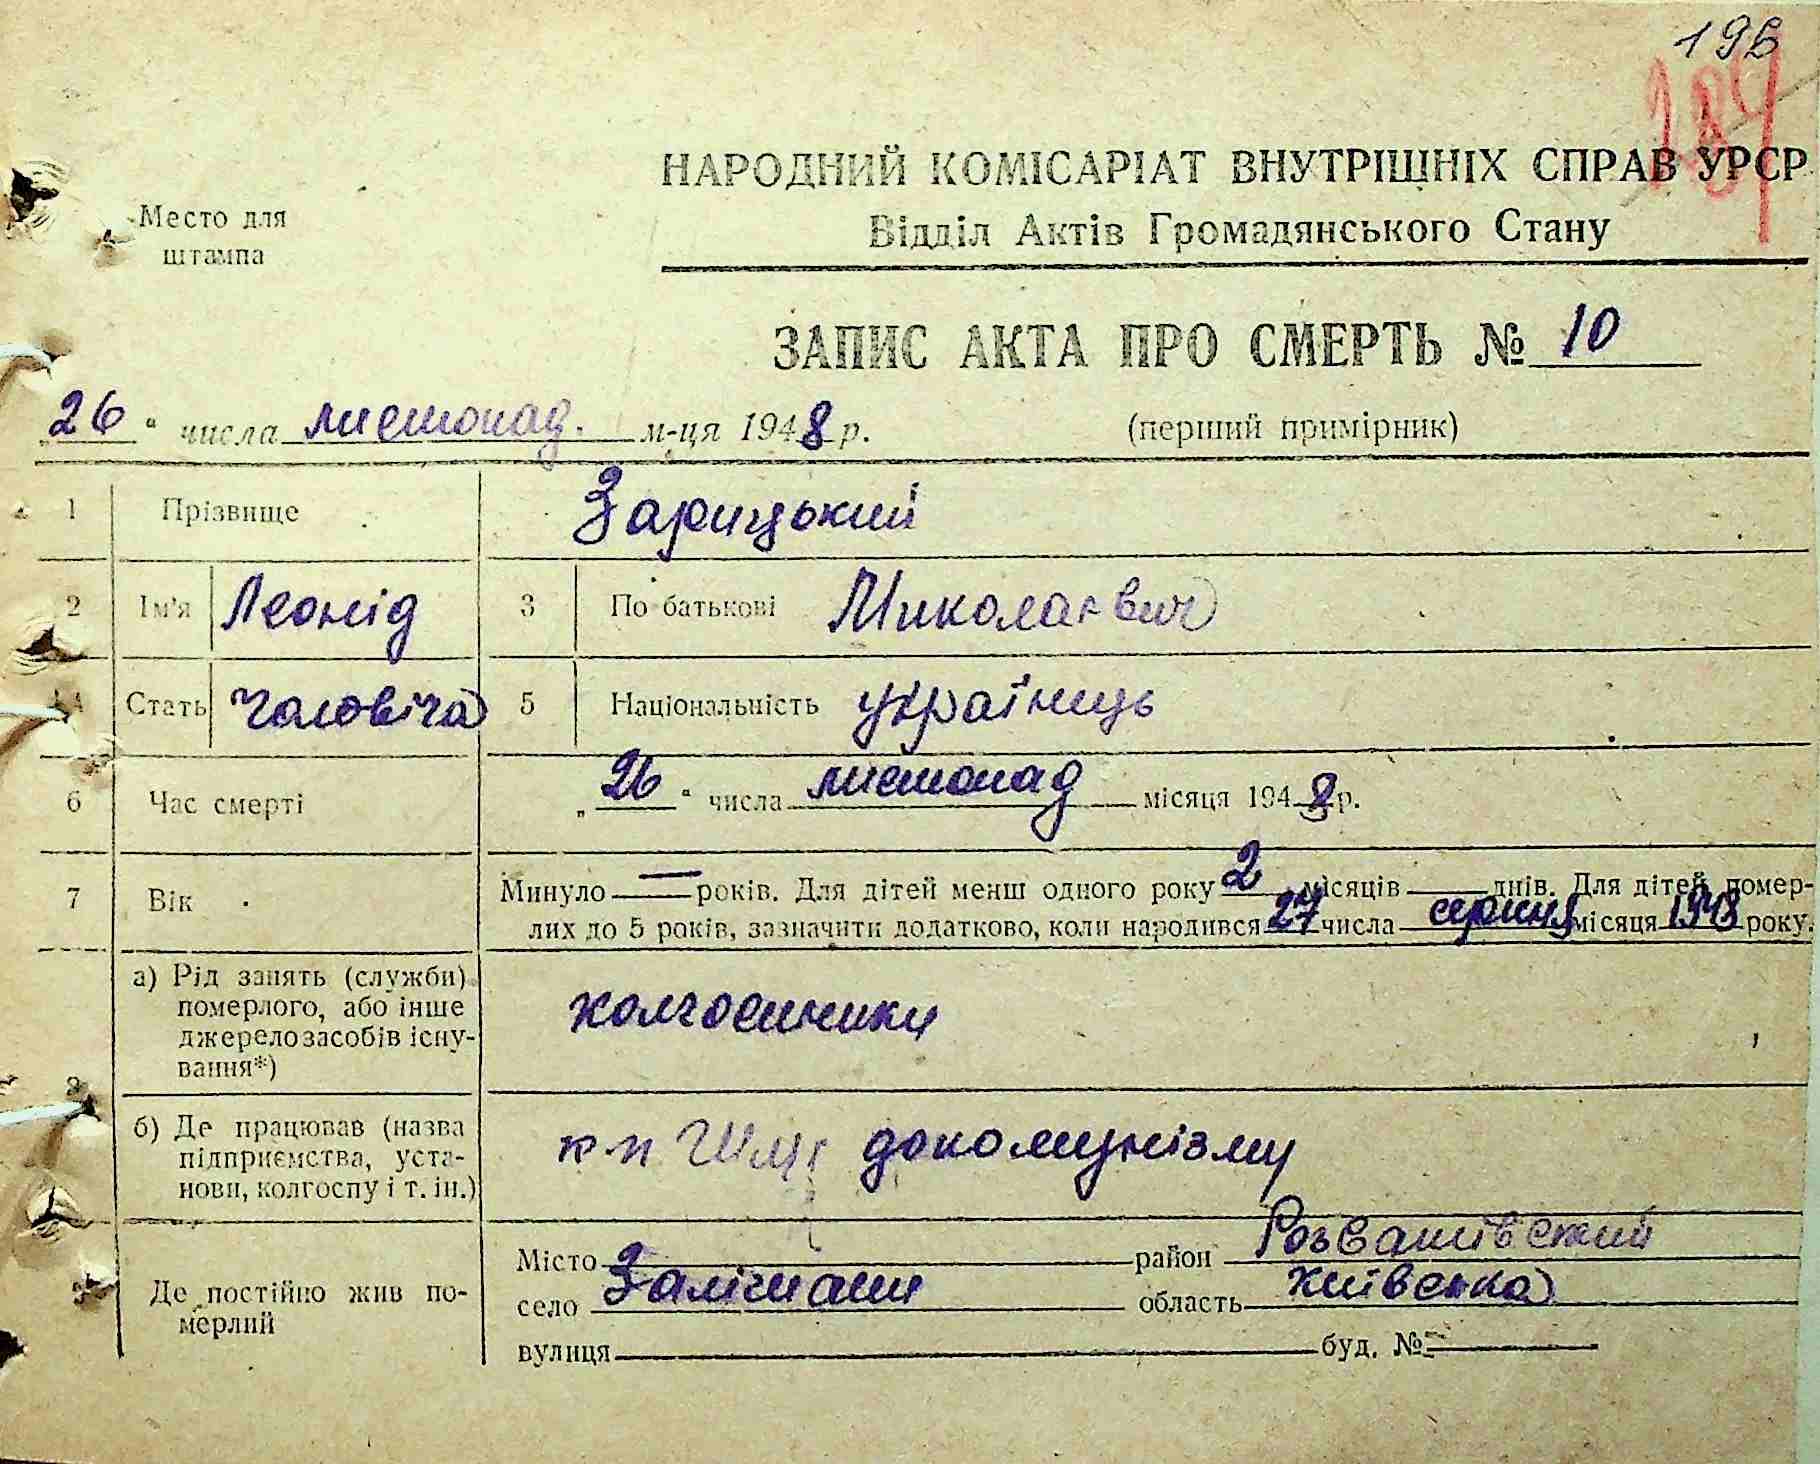 195
189
НАРОДНИЙ КОМІСАРІАТ ВНУТРІШНІХ СПРАВ УРСР
Відділ Актів Громадянського Стану
Место для
штампа
ЗАПИС АКТА ПРО СМЕРТЬ № 10
„26“ числа листопад. м-ця 1948 р.
(перший примірник)
1 Прізвище Зарицький
2 Ім'я Леонід 3 По батькові Миколаєвич
Стать чоловіча 5 Національність українець
6 Час смерті „26“ числа листопад місяця 1948 р.
7 Вік Минуло — років. Для дітей менш одного року 2 місяців — днів. Для дітей помер-
лих до 5 років, зазначити додатково, коли народився 27 числа серпня місяця 1948 року.
8 а) Рід занять (служби)
померлого, або інше
джерело засобів існу-
вання*) колгоспники
б) Де працював (назва
підприємства, уста-
нови, колгоспу і т. ін.) докомунізму
9 Де постійно жив по-
мерлий
Місто район Розважівский
село область Київська
вулиця буд. №